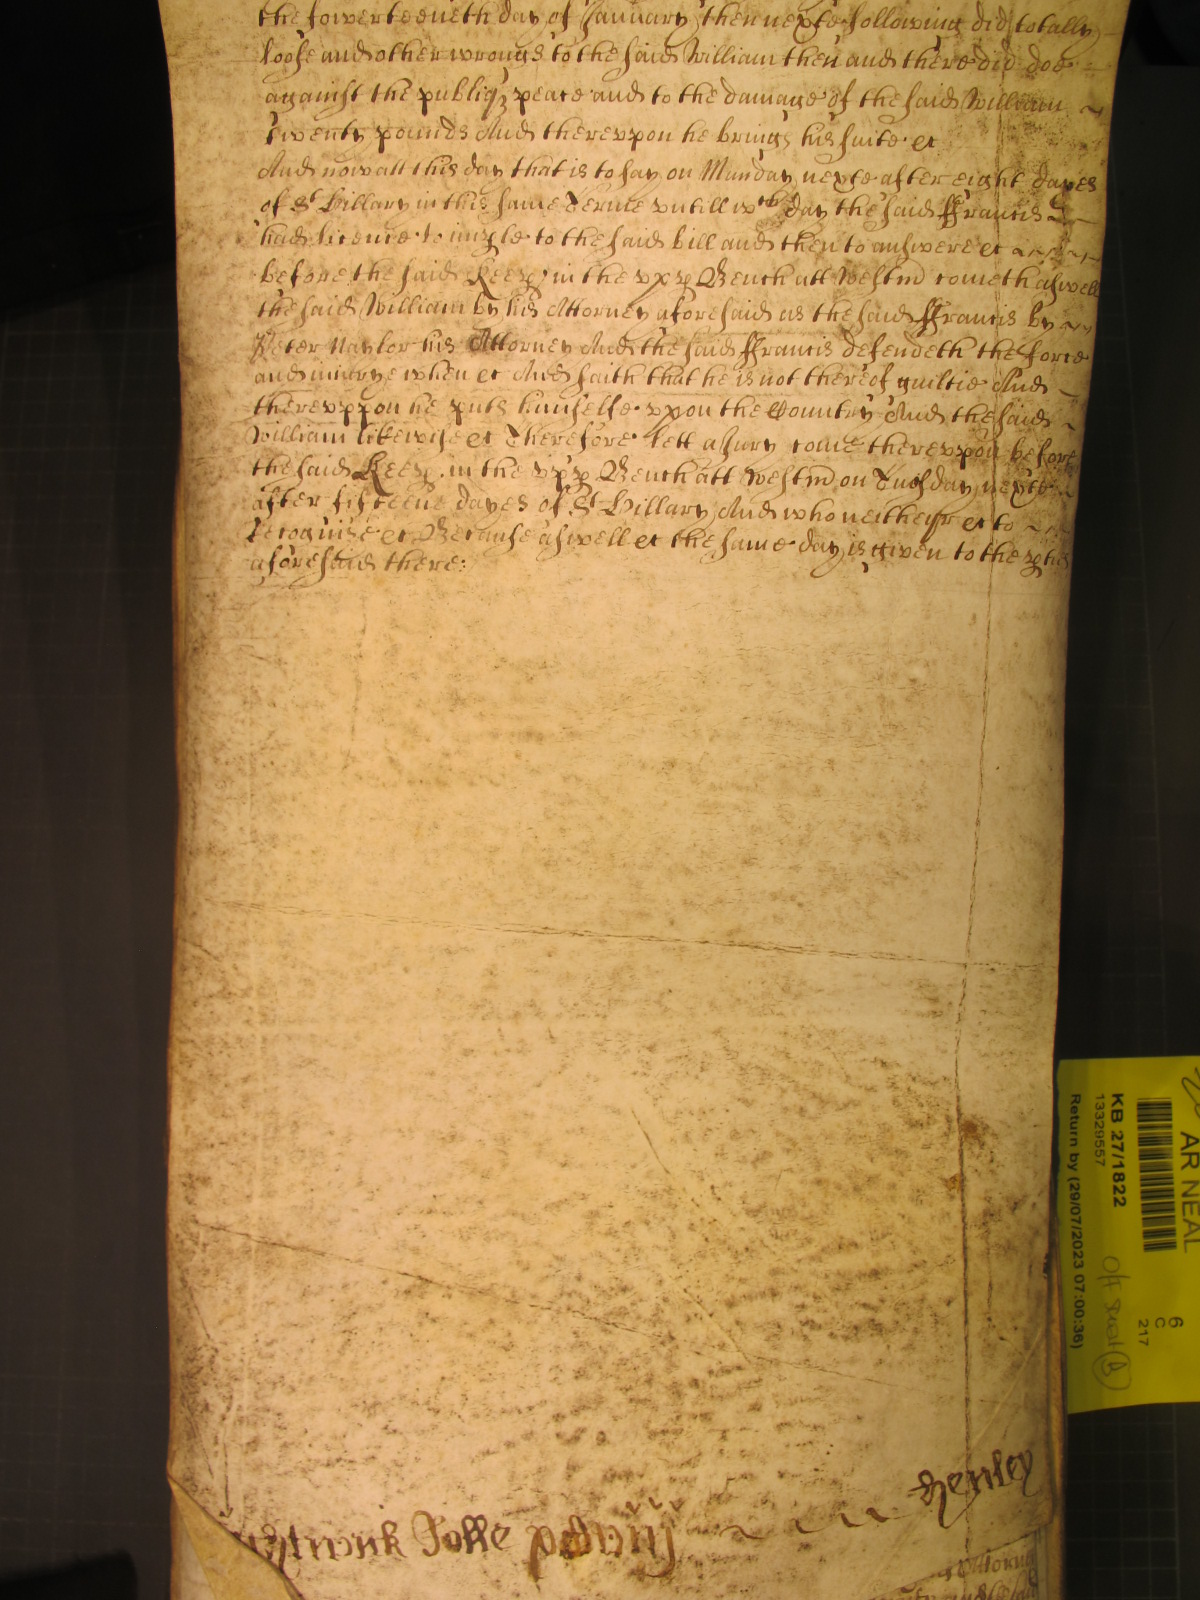 the fowerteeneth day of January then nexte following did totally
loose and other wrongs to the said William then and there did doe
against the publiq; peace and to the damage of the said William
twenty pounds And therevpon he brings his suite et
And now att this day that is to say on Munday nexte after eight dayes
of St Hillary in this same Terme vntill wch day the said ffrancis
had licence to imple to the said bill and then to answere et
before the said Keep in the vpp Bench att Westm cometh aswell
the said William by his Attorney aforesaid as the said ffrancis by
Peter Naylor his Attorney And the said ffrancis defendeth the force
and iniurye when et And saith that he is not thereof guiltie And
therevppon he puts himselfe vppon the Country And the said
William likewise et Therefore lett a Jury come therevpon before
the said Keep. in the vpp Bench att Westm on Tuesday nexte
after fifteene dayes of St Hillary And who neither et to
Recognise et Because aswell et the same day is given to the pties
aforesaid there:
Henley
AR NEAL
KB 27/1822
13329557
Return by (29/07/2023 07:00:36)
6
C
217